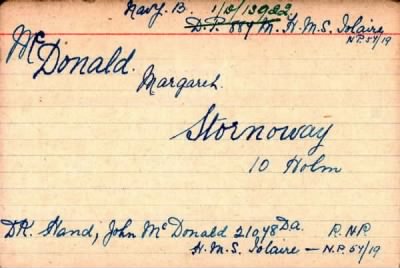 Navy. B. 1/D/13922.
D.P. 887/M. H.M.S. Iolaire
N.P. 57/19
McDonald.
Margaret.
Stornoway
10 Holm
DK. Hand, John McDonald 21048 Da. R.N.R.
H.M.S. Iolaire — N.P. 57/19